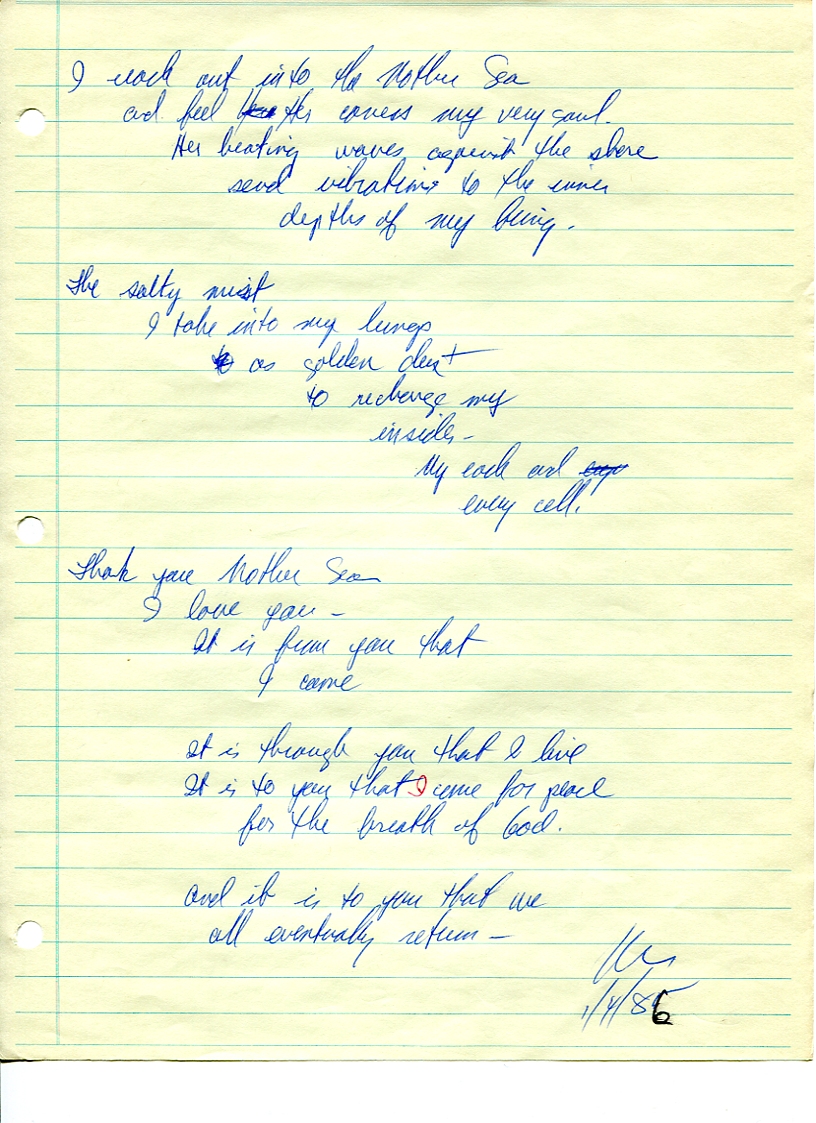 I reach out into the Mother Sea
and feel Her covers my very soul.
Her beating waves against the shore
send vibrations to the inner
depths of my being.
The salty mist
I take into my lungs
as golden dust
to recharge my
insides-
My each and
every cell.
Thank you Mother Sea
I love you -
It is from you that
I came
It is through you that I live
It is to you that I come for peace
for the breath of God.
and it is to you that we
all eventually return -
1/4/86